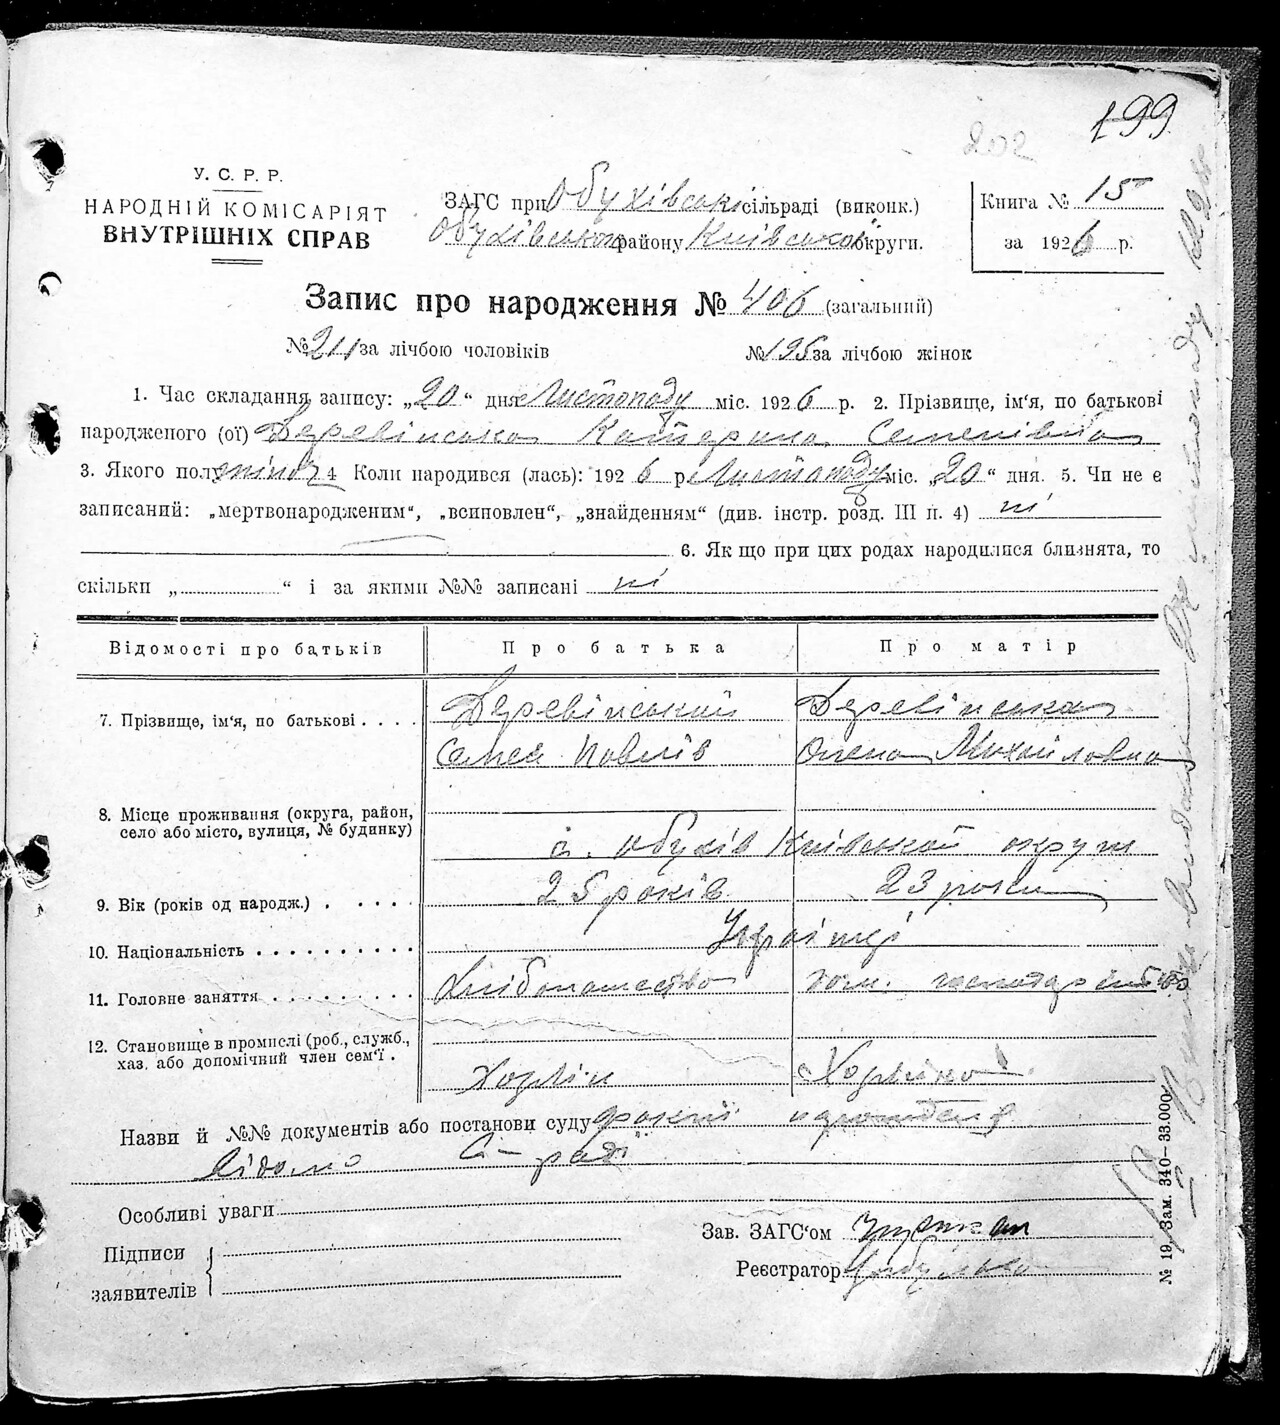 199
202
У. С. Р. Р.
НАРОДНІЙ КОМІСАРІЯТ
ВНУТРІШНІХ СПРАВ
ЗАГС при Обухівські сільраді (виконк.)
Обухівського району Київської округи.
Книга № 15
за 1926 р.
Запис про народження № 406 (загальний)
№ 211 за лічбою чоловіків № 195 за лічбою жінок
1. Час складання запису: „20“ дня Листопаду міс. 1926 р. 2. Прізвище, ім‘я, по батькові
народженого (ої) Деревінська Катерина Семенівна
3. Якого полу жіноч 4 Коли народився (лась): 1926 р. Листопаду міс. „20“ дня. 5. Чи не є
записаний: „мертвонародженим“, „всиновлен“, „знайденням“ (див. інстр. розд. III п. 4) ні
6. Як що при цих родах народилися близнята, то
скільки „ “ і за якими №№ записані ні
Відомості про батьків Про батька Про матір
7. Прізвище, ім‘я, по батькові . . . . Деревінський Деревінська
Семен Павлів Олена Михайловна
8. Місце проживання (округа, район,
село або місто, вулиця, № будинку)
с. Обухів Київської округи
9. Вік (років од народж.) . . . . . 25 років 23 роки
10. Національність . . . . . . . . . . Українці
11. Головне заняття . . . . . . . . . Хлібопашество дом. господарство
12. Становище в промислі (роб., служб.,
хаз. або допомічний член сем‘ї .
Хазяїн Хазяйка
Назви й №№ документів або постанови суду факт народження
відомо С-раді
Особливі уваги
Підписи
заявителів
Зав. ЗАГС‘ом
Реєстратор
№ 19. Зам. 340—33.000.